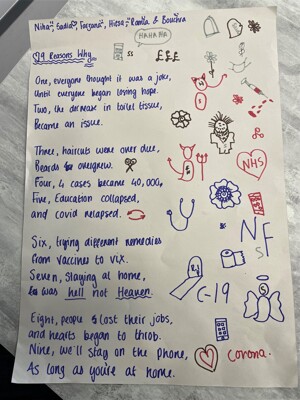 Niha, Sadia, Farzana, Hissa, Ranlla & Bouchra
HAHAHA
£££
29 Reasons Why
One, everyone thought it was a joke,
Until everyone began losing hope.
Two, the decrease in toilet tissue,
Became an issue.
Three, haircuts were over due,
Beards overgrew.
Four, 4 cases became 40,000,
Five, Education collapsed,
and covid relapsed.
NHS
Six, trying different remedies
from vaccines to vix.
Seven, staying at home,
was hell not Heaven.
NF
S
C-19
Eight, people lost their jobs,
and hearts began to throb.
Nine, we'll stay on the phone,
As long as you're at home.
corona.